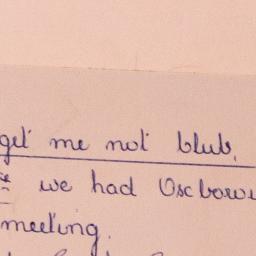 get me not blub.
we had Osbow
meeting.